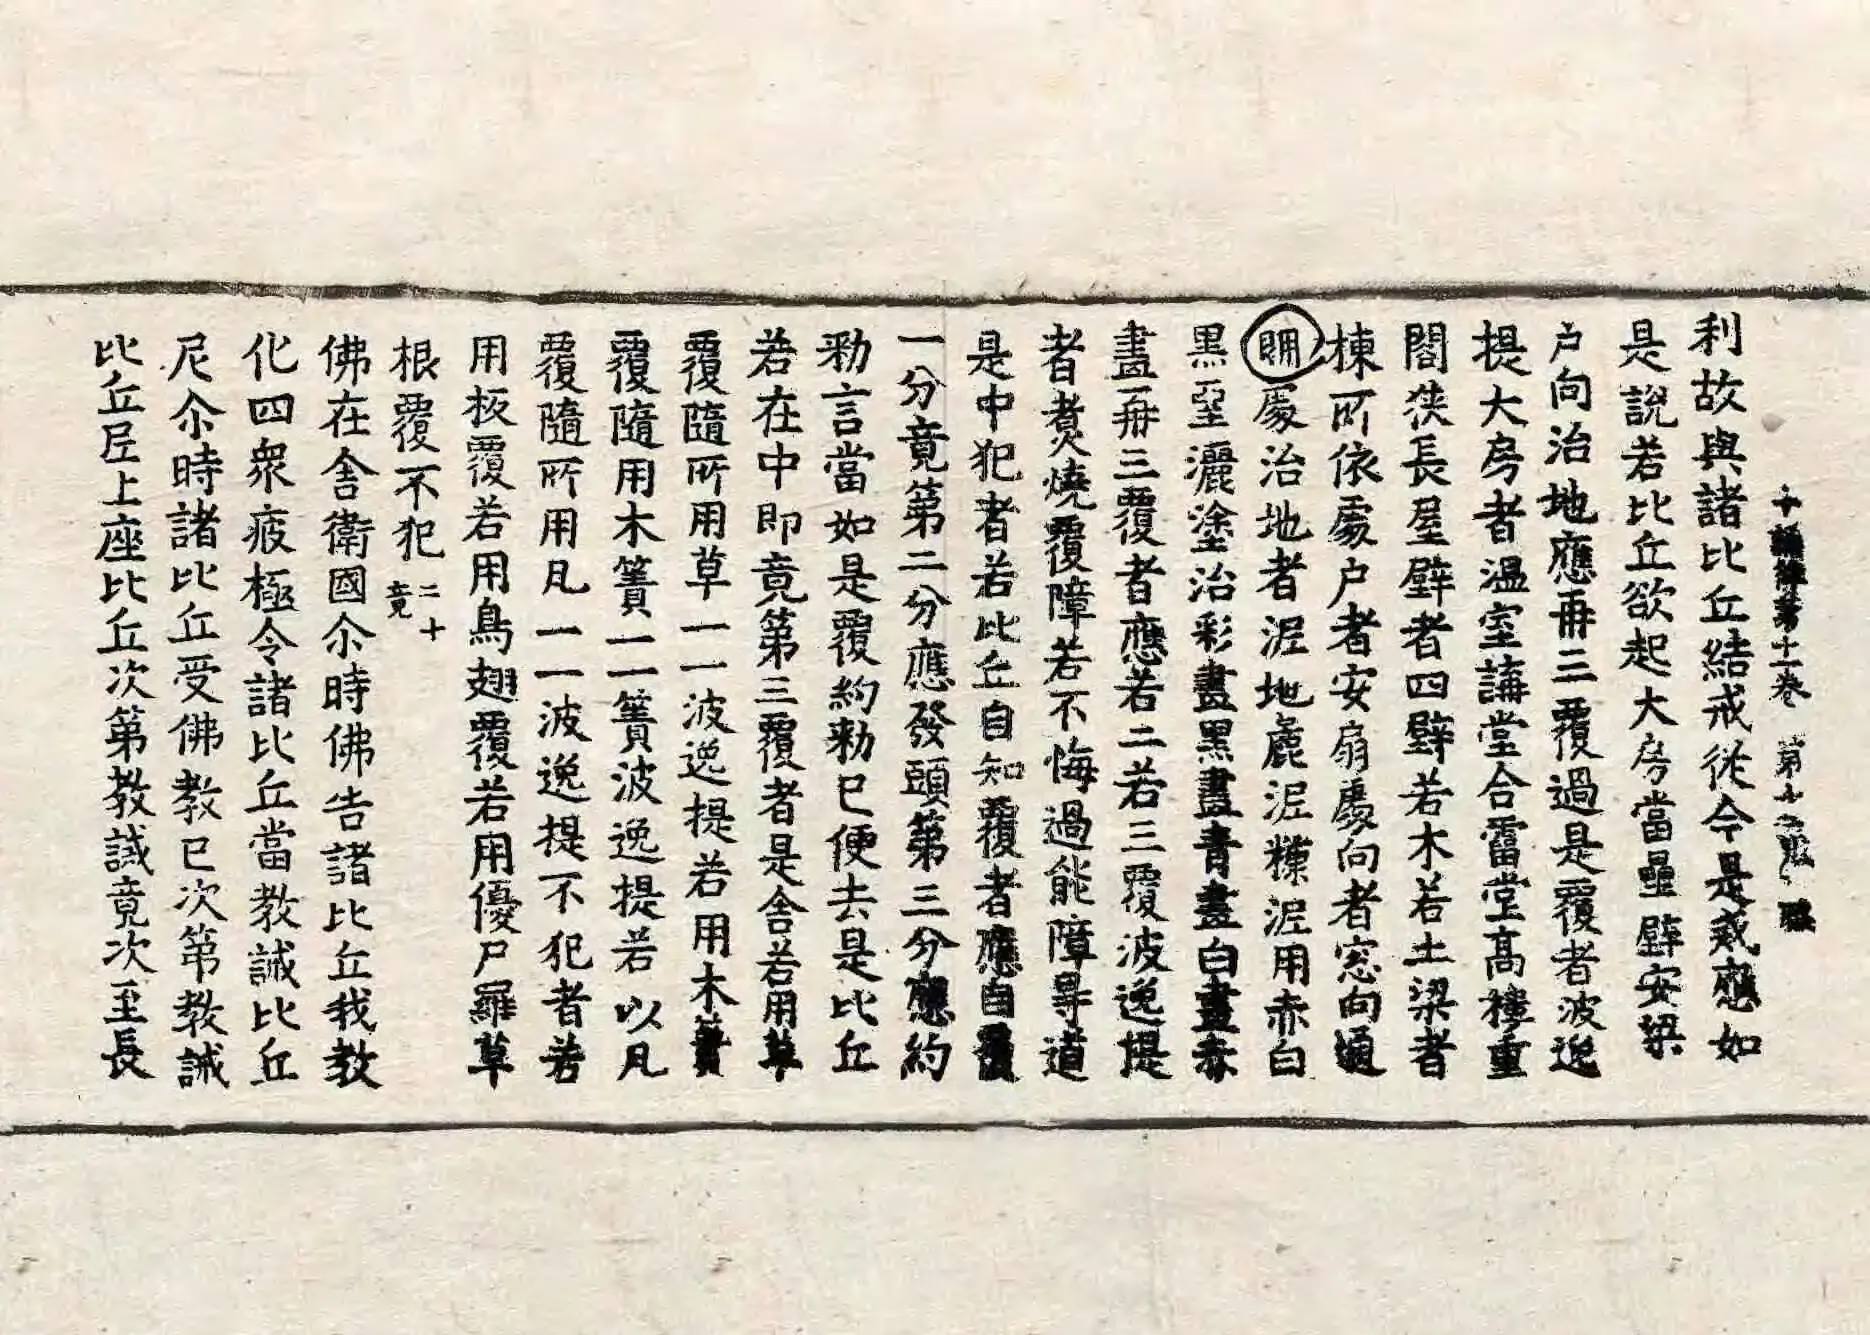 十誦律第十一卷 第十
利故與諸比丘結戒從今是戒應如
是說若比丘欲起大房當壘壁安梁
户向治地應再三覆過是覆者波逸
提大房者溫室講堂合霤堂高樓重
閣狹長屋壁者四壁若木若土梁者
棟所依處户者安扇處向者窓向通
明處治地者泥地麁泥糠泥用赤白
黒堊灑塗治彩畫黒畫青畫白畫赤
畫再三覆者應若二若三覆波逸提
者煮燒覆障若不悔過能障㝵道
是中犯者若比丘自知覆者應自覆
一分竟第二分應發頭第三分應約
勑言當如是覆約勑已便去是比丘
若在中即竟第三覆者是舎若用草
覆隨所用草一一波逸提若用木簀
覆隨用木簀一一簀波逸提若以凡
覆隨所用凡一一波逸提不犯者若
用板覆若用鳥翅覆若用優尸羅草
根覆不犯 二十竟
佛在舎衛國尒時佛告諸比丘我教
化四衆疲極令諸比丘當教誡比丘
尼尒時諸比丘受佛教已次第教誡
比丘尼上座比丘次第教誡竟次至長